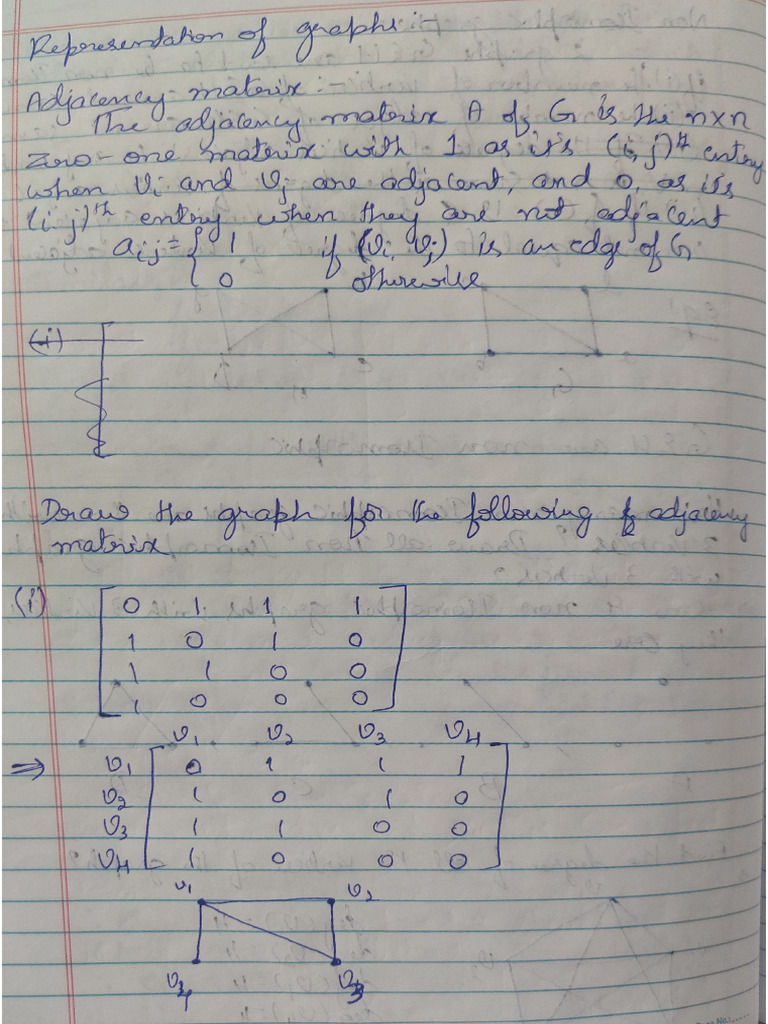 Representation of graphs :-
Adjacency matrix :-
The adjacency matrix A of G is the n×n
zero-one matrix with 1 as it's (i,j)th entry
when vi and vj are adjacent, and 0, as its
(i.j)th entry when they are not adjacent
aij = { 1 if (vi, vj) is an edge of G
0 otherwise
(i)
Draw the graph for the following adjacency
matrix
(i) [ 0 1 1 1
1 0 1 0
1 1 0 0
1 0 0 0 ]
v1 v2 v3 v4
⇒ v1 [ 0 1 1 1
v2 1 0 1 0
v3 1 1 0 0
v4 1 0 0 0 ]
v1 v2
v4 v3